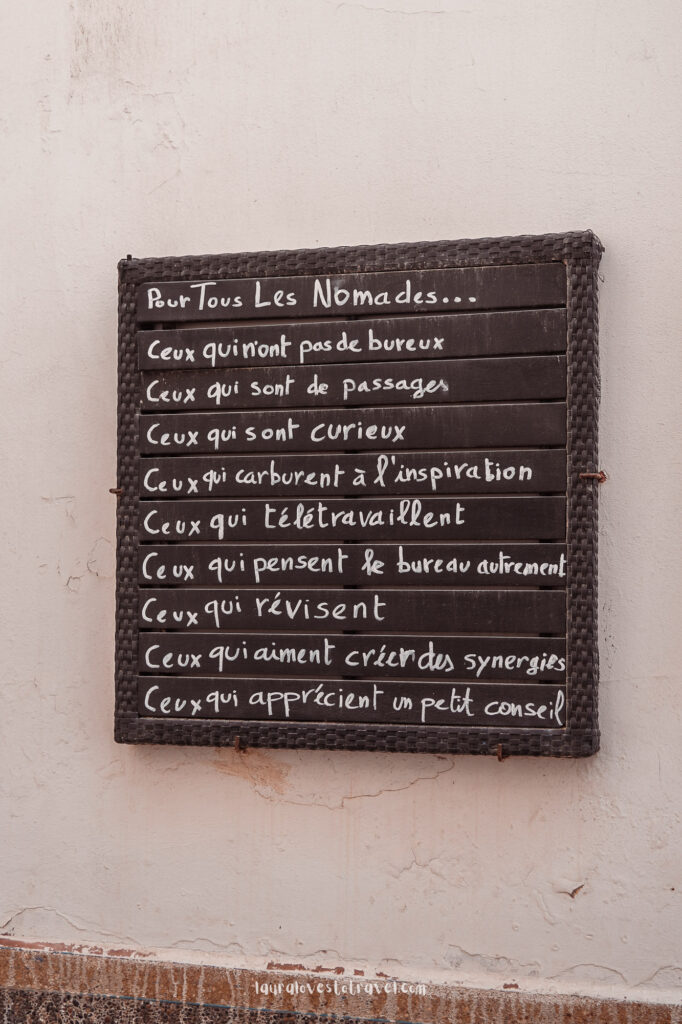 Pour Tous Les Nomades...
Ceux qui n'ont pas de bureux
Ceux qui sont de passages
Ceux qui sont curieux
Ceux qui carburent à l'inspiration
Ceux qui télétravaillent
Ceux qui pensent le bureau autrement
Ceux qui révisent
Ceux qui aiment créer des synergies
Ceux qui apprécient un petit conseil
lauralovestotravel.com